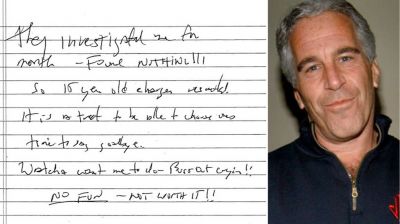 They investigated me for
month – Found NOTHING!!!
So 15 year old charges
It is a treat to be able to choose
time to say goodbye.
Watcha want me to do – Burst out cryin!!
NO FUN – NOT WORTH IT!!